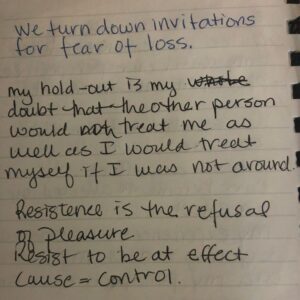 We turn down invitations
for fear of loss.
my hold-out is my whole
doubt that the other person
would not treat me as
well as I would treat
myself if I was not around.
Resistence is the refusal
of pleasure
Resist to be at effect
Cause = Control.